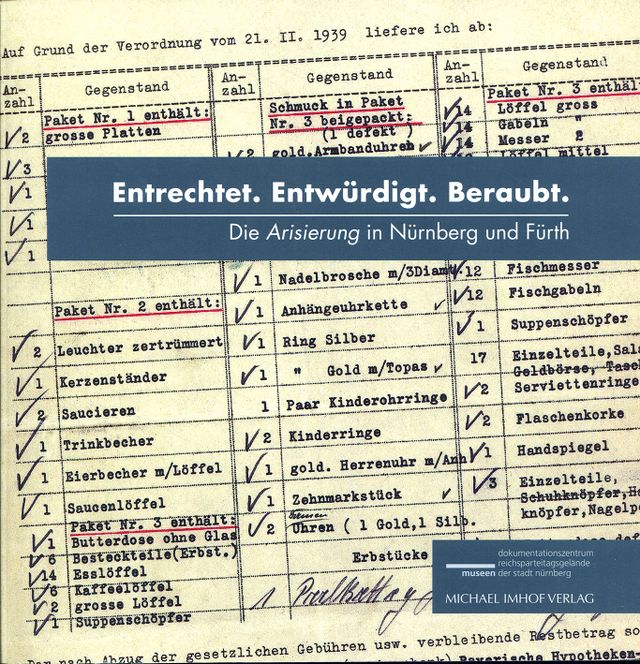 Auf Grund der Verordnung vom 21. II. 1939 liefere ich ab:
An-
zahl
Gegenstand
Paket Nr. 1 enthält:
2 grosse Platten
3
1
1
1
Paket Nr. 2 enthält:
2 Leuchter zertrümmert
1 Kerzenständer
2 Saucieren
1 Trinkbecher
1 Eierbecher m/Löffel
1 Saucenlöffel
Paket Nr. 3 enthält:
1 Butterdose ohne Glas
6 Besteckteile(Erbst.)
14 Esslöffel
6 Kaffeelöffel
2 grosse Löffel
1 Suppenschöpfer
An-
zahl
Gegenstand
Schmuck in Paket
Nr. 3 beigepackt:
(1 defekt )
2 gold.Armbanduhren
1 Nadelbrosche m/3Diamt.
1 Anhängeuhrkette
1 Ring Silber
1 " Gold m/Topas
1 Paar Kinderohrringe
2 Kinderringe
1 gold. Herrenuhr m/Anh
1 Zehnmarkstück
2 Uhren ( 1 Gold,1 Silb.
Erbstücke
1
An-
zahl
Gegenstand
Paket Nr. 3 enthäl
14 Löffel gross
14 Gabeln "
14 Messer 2
Löffel mittel
12 Fischmesser
12 Fischgabeln
1 Suppenschöpfer
17 Einzelteile,Sal
Geldbörse, Tasc
2 Serviettenringe
2 Flaschenkorke
1 Handspiegel
3 Einzelteile,
Schuhknöpfer,H
knöpfer,Nagelp
Entrechtet. Entwürdigt. Beraubt.
Die Arisierung in Nürnberg und Fürth
dokumentationszentrum
reichsparteitagsgelände
museen der stadt nürnberg
MICHAEL IMHOF VERLAG
Der nach Abzug der gesetzlichen Gebühren usw. verbleibende Restbetrag so
Bayerische Hypotheken-